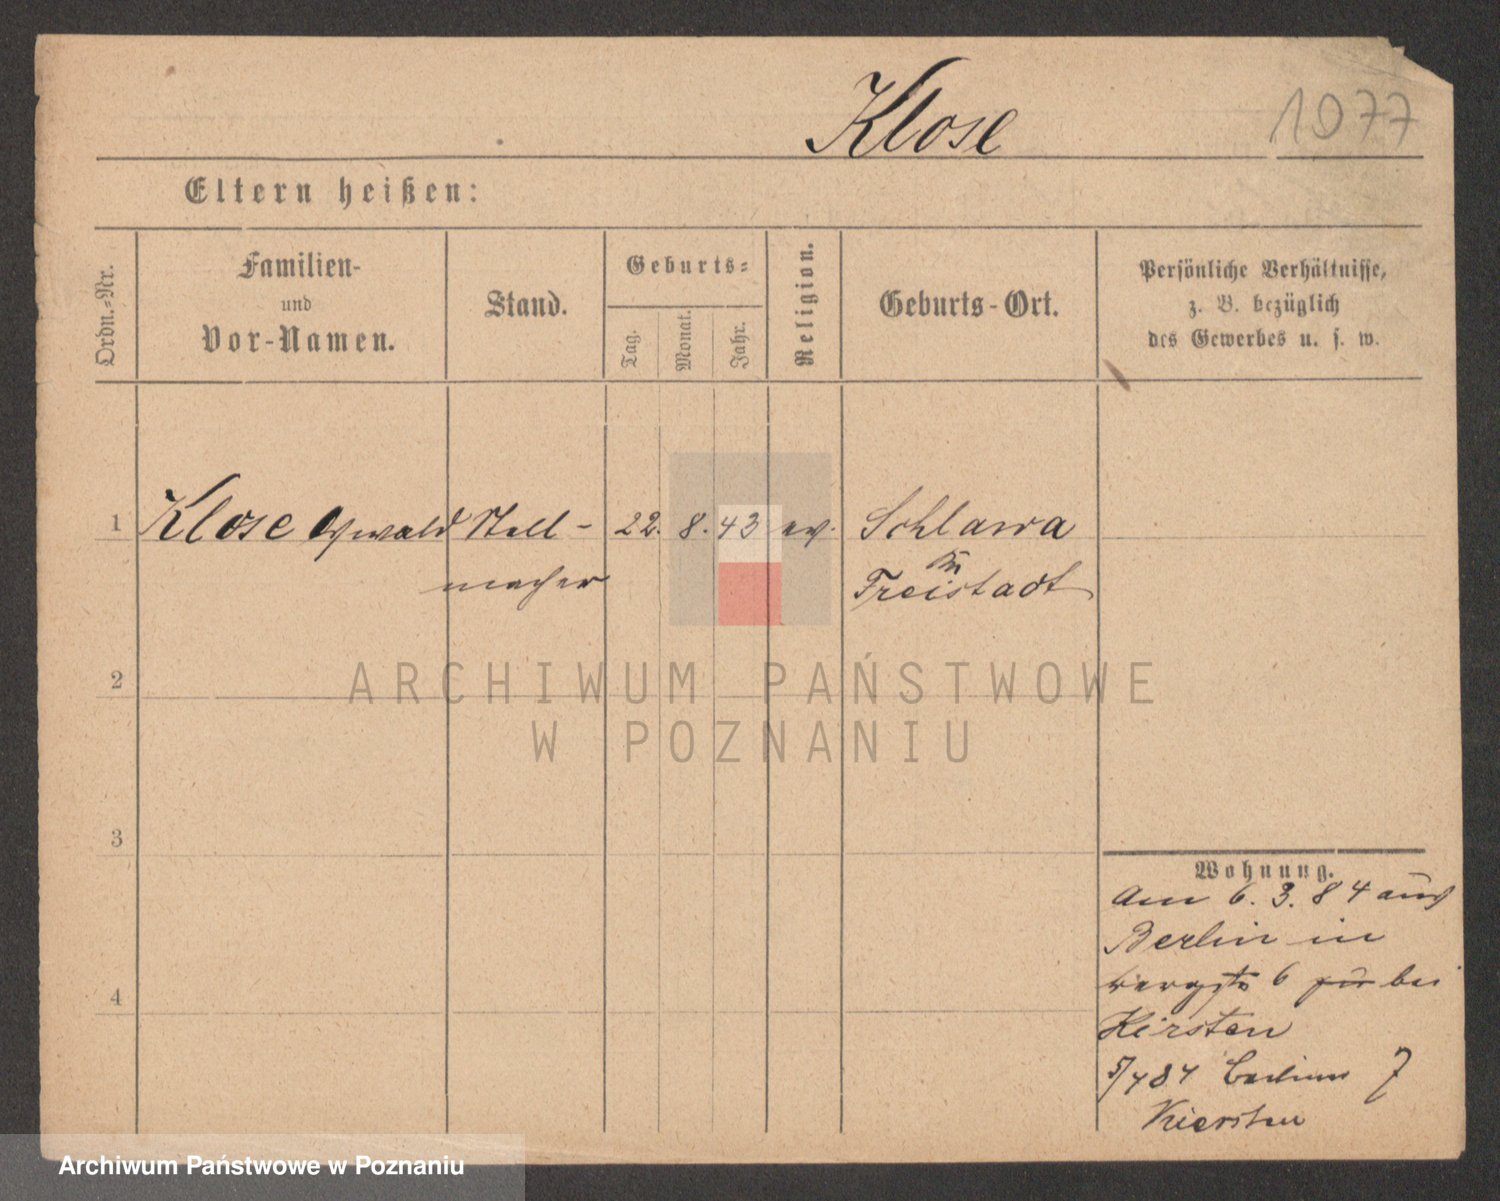 Klose
1077
Eltern heißen:
Ordn.-Nr.
Familien-
und
Vor-Namen.
Stand.
Geburts-
Tag.
Monat.
Jahr.
Religion.
Geburts-Ort.
Persönliche Verhältnisse,
z. B. bezüglich
des Gewerbes u. s. w.
1 Klose Oswald Stell- 22. 8. 43 ev. Schlawa
macher Freistadt
2
ARCHIWUM PAŃSTWOWE
W POZNANIU
3
Wohnung.
Am 6. 3. 84 aus
Berlin in
6 bei
Kirsten
5/4 84 7
Kiersten
4
Archiwum Państwowe w Poznaniu